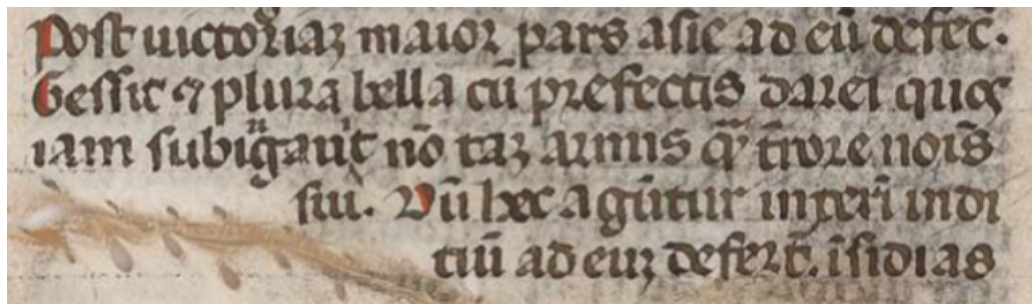 Post uictoꝛiaꝫ maioꝛ pars asie ad eū defec̄.
Gessit ⁊ plura bella cū prefectis darei quoꝝ
iam nō taꝫ armis tīore noīs
sui. Dū hec agūtur inteꝛī indi
tiū ad euꝫ defert̄. īsidias